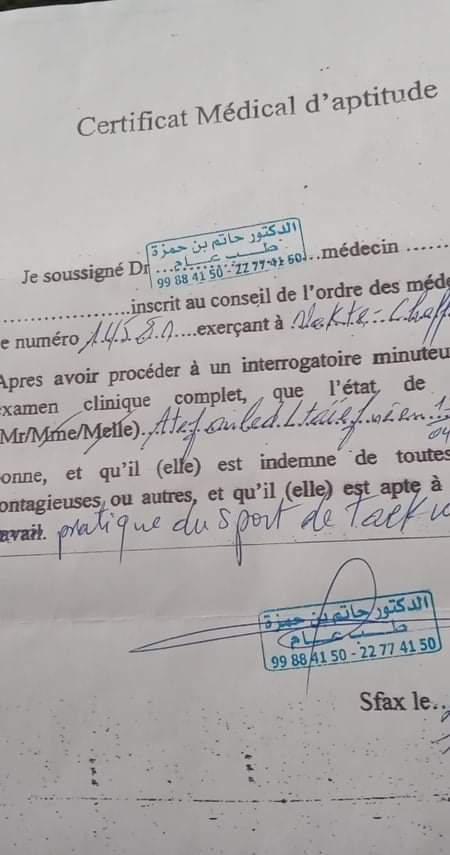 Certificat Médical d'aptitude
الدكتور حاتم بن حمزة
طب عام
99 88 41 50 - 22 77 41 50
Je soussigné Dr ...médecin ......
..................inscrit au conseil de l'ordre des méde
e numéro ....exerçant à
Apres avoir procéder à un interrogatoire minuteu
examen clinique complet, que l'état de
Mr/Mme/Melle).
onne, et qu'il (elle) est indemne de toutes
ontagieuses ou autres, et qu'il (elle) est apte à
avail. pratique du sport de Taek
الدكتور حاتم بن حمزة
طب عام
99 88 41 50 - 22 77 41 50
Sfax le..